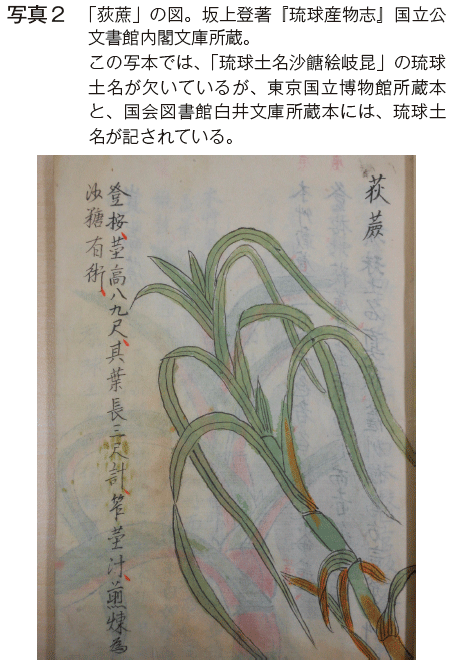 写真2　「荻蔗」の図。坂上登著『琉球産物志』国立公
文書館内閣文庫所蔵。
この写本では、「琉球土名沙餹絵岐昆」の琉球
土名が欠いているが、東京国立博物館所蔵本
と、国会図書館白井文庫所蔵本には、琉球土
名が記されている。
荻蔗
登按莖高八九尺其葉長三尺計笮莖汁煎煉為
沙糖有術